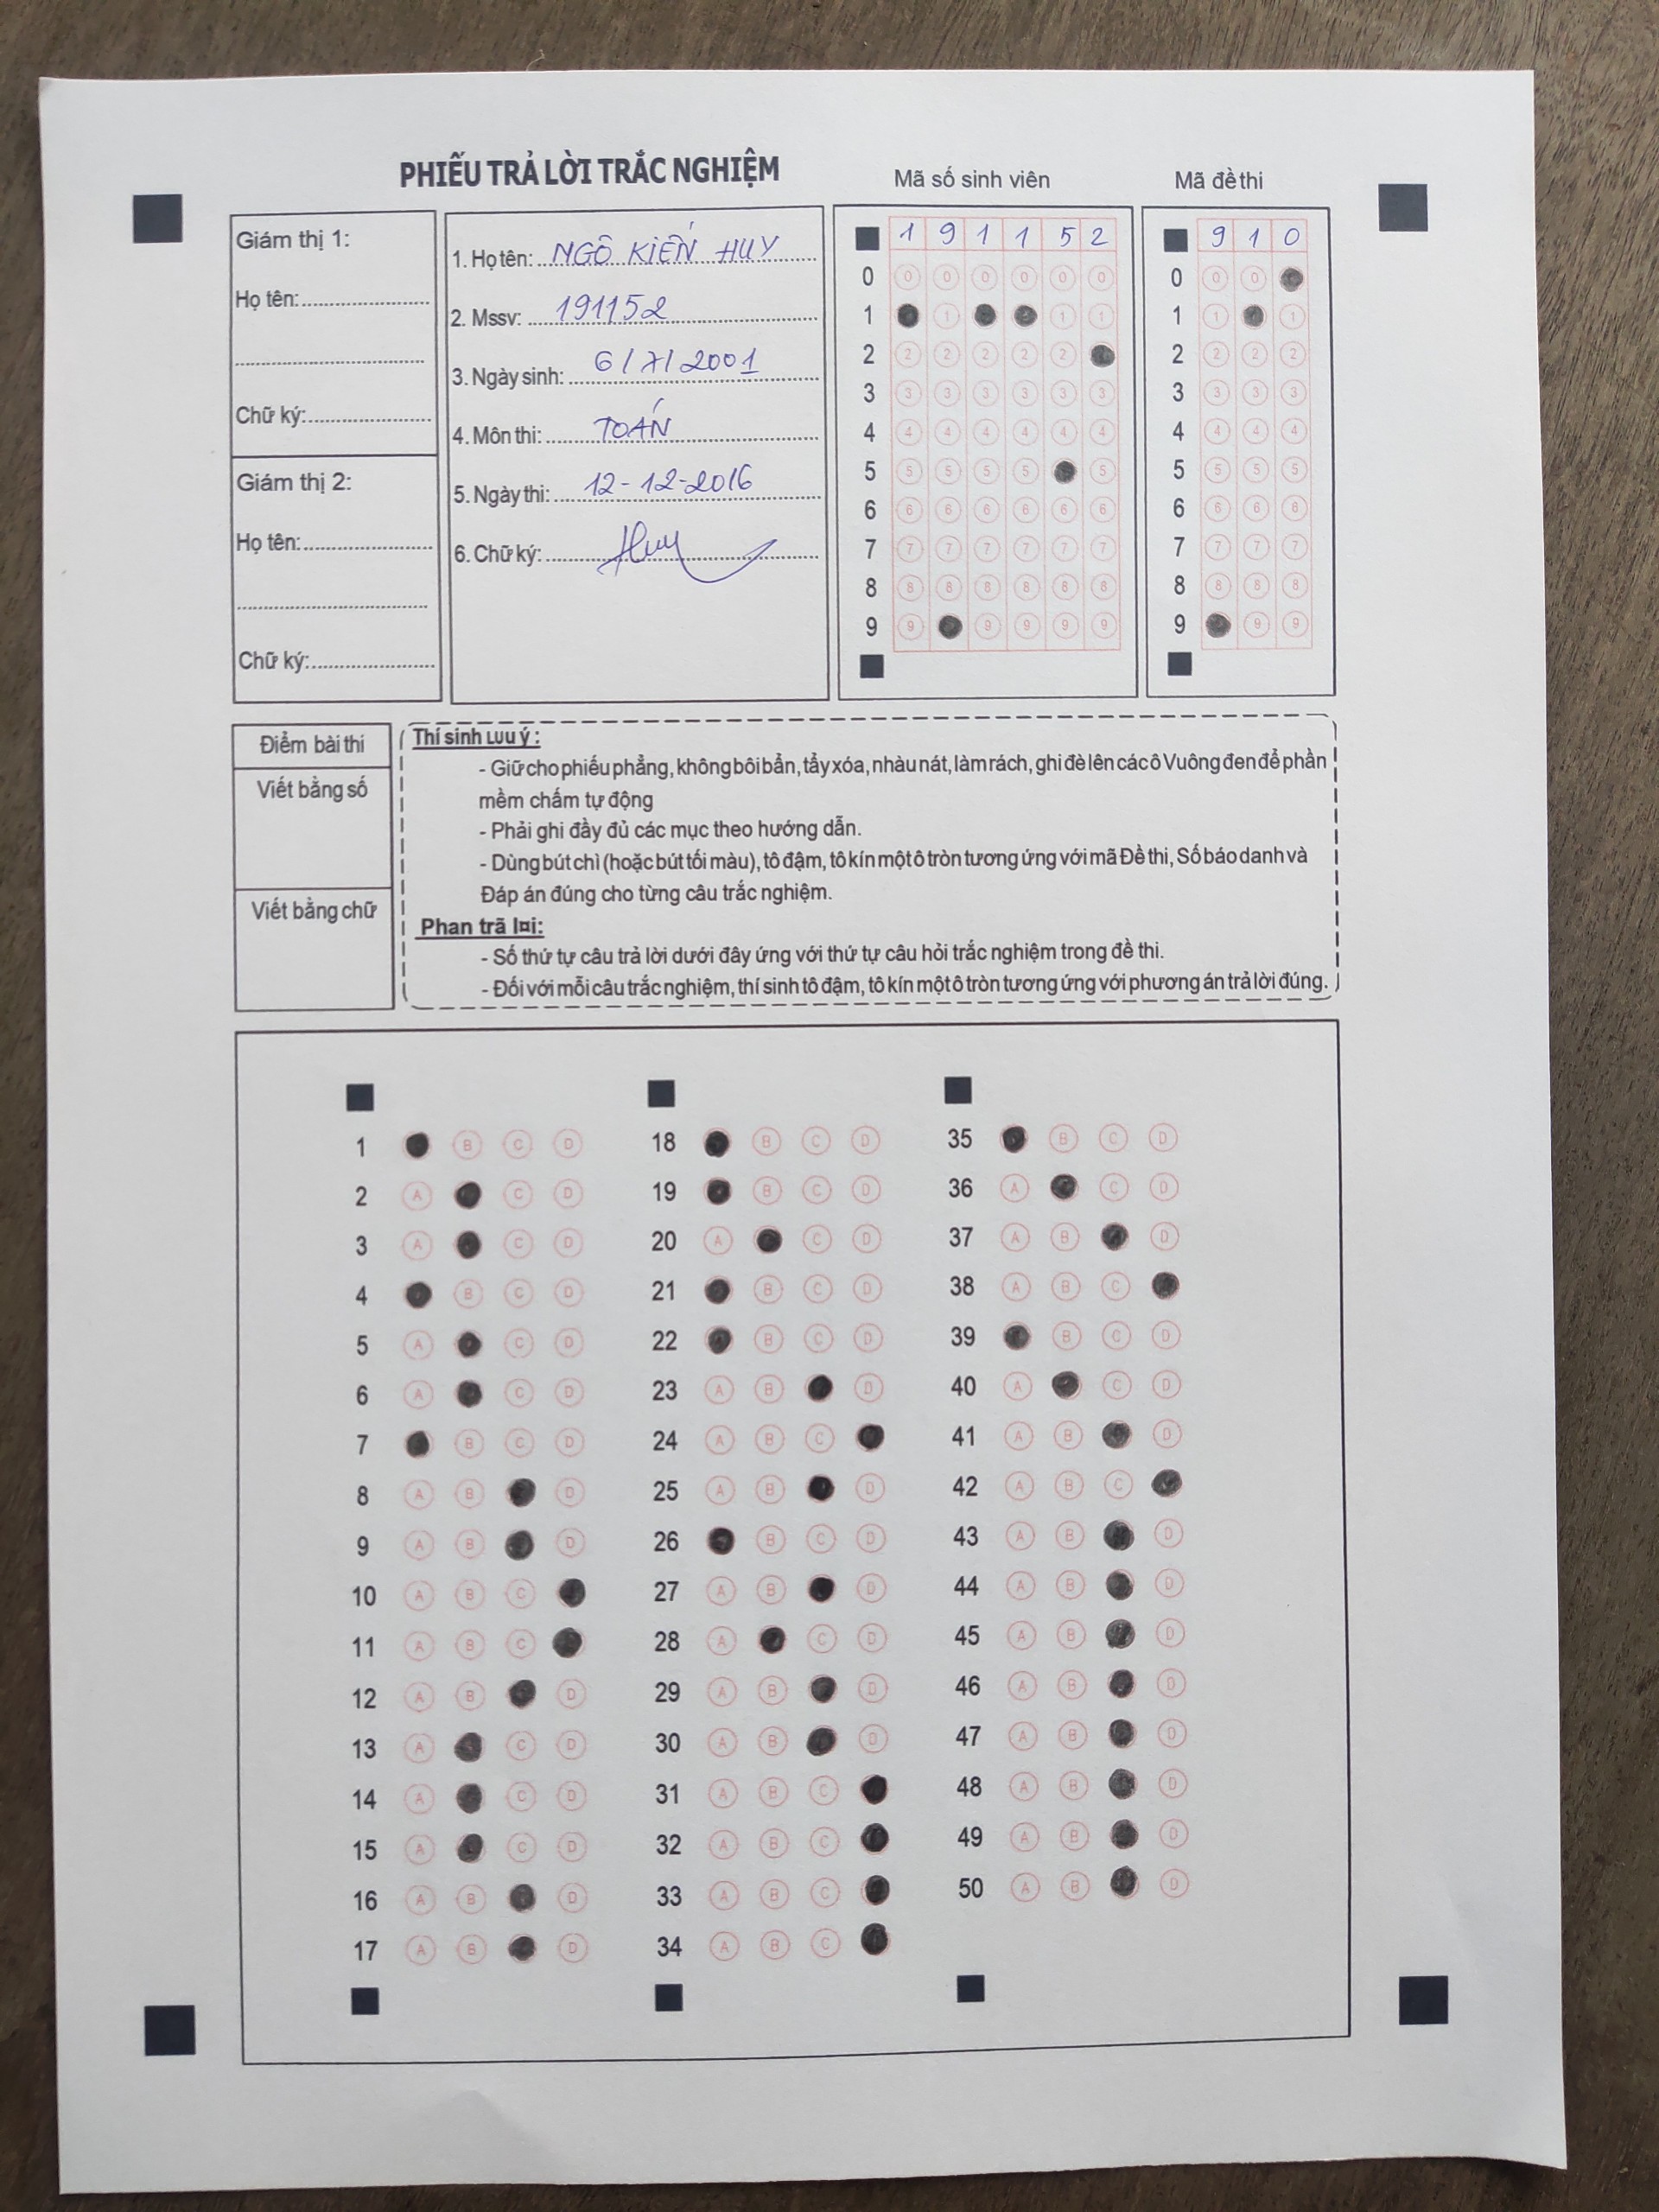 PHIẾU TRẢ LỜI TRẮC NGHIỆM
Mã số sinh viên
Mã đề thi
Giám thị 1:
Họ tên:
Chữ ký:
Giám thị 2:
Họ tên:
Chữ ký:
1. Họ tên: NGÔ KIẾN HUY
2. Mssv: 191152
3. Ngày sinh: 6/7/2001
4. Môn thi: TOÁN
5. Ngày thi: 12-12-2016
6. Chữ ký: Huy
1 9 1 1 5 2
0 0 0 0 0 0 0
1 1 1 1
2 2 2 2 2 2
3 3 3 3 3 3 3
4 4 4 4 4 4 4
5 5 5 5 5 5
6 6 6 6 6 6 6
7 7 7 7 7 7 7
8 8 8 8 8 8 8
9 9 9 9 9 9
9 1 0
0 0 0
1 1 1
2 2 2 2
3 3 3 3
4 4 4 4
5 5 5 5
6 6 6 6
7 7 7 7
8 8 8 8
9 9 9
Điểm bài thi
Viết bằng số
Viết bằng chữ
Thí sinh Lưu ý :
- Giữ cho phiếu phẳng, không bôi bẩn, tẩy xóa, nhàu nát, làm rách, ghi đè lên các ô Vuông đen để phần
mềm chấm tự động
- Phải ghi đầy đủ các mục theo hướng dẫn.
- Dùng bút chì (hoặc bút tối màu), tô đậm, tô kín một ô tròn tương ứng với mã Đề thi, Số báo danh và
Đáp án đúng cho từng câu trắc nghiệm.
Phan trã l¤i:
- Số thứ tự câu trả lời dưới đây ứng với thứ tự câu hỏi trắc nghiệm trong đề thi.
- Đối với mỗi câu trắc nghiệm, thí sinh tô đậm, tô kín một ô tròn tương ứng với phương án trả lời đúng.
1 B C D
2 A C D
3 A C D
4 B C D
5 A C D
6 A C D
7 B C D
8 A B D
9 A B D
10 A B C
11 A B C
12 A B D
13 A C D
14 A C D
15 A C D
16 A B D
17 A B D
18 B C D
19 B C D
20 A C D
21 B C D
22 B C D
23 A B D
24 A B C
25 A B D
26 B C D
27 A B D
28 A C D
29 A B D
30 A B D
31 A B C
32 A B C
33 A B C
34 A B C
35 B C D
36 A C D
37 A B D
38 A B C
39 B C D
40 A C D
41 A B D
42 A B C
43 A B D
44 A B D
45 A B D
46 A B D
47 A B D
48 A B D
49 A B D
50 A B D